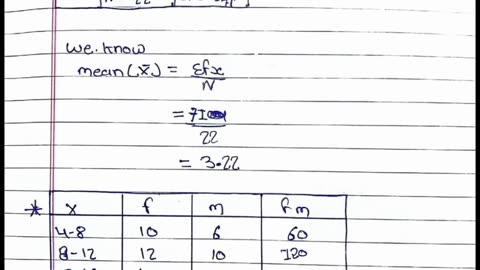 we know
mean (x̄) = Σfx
N
= 71
22
= 3.22
* x f m fm
4-8 10 6 60
8-12 12 10 120